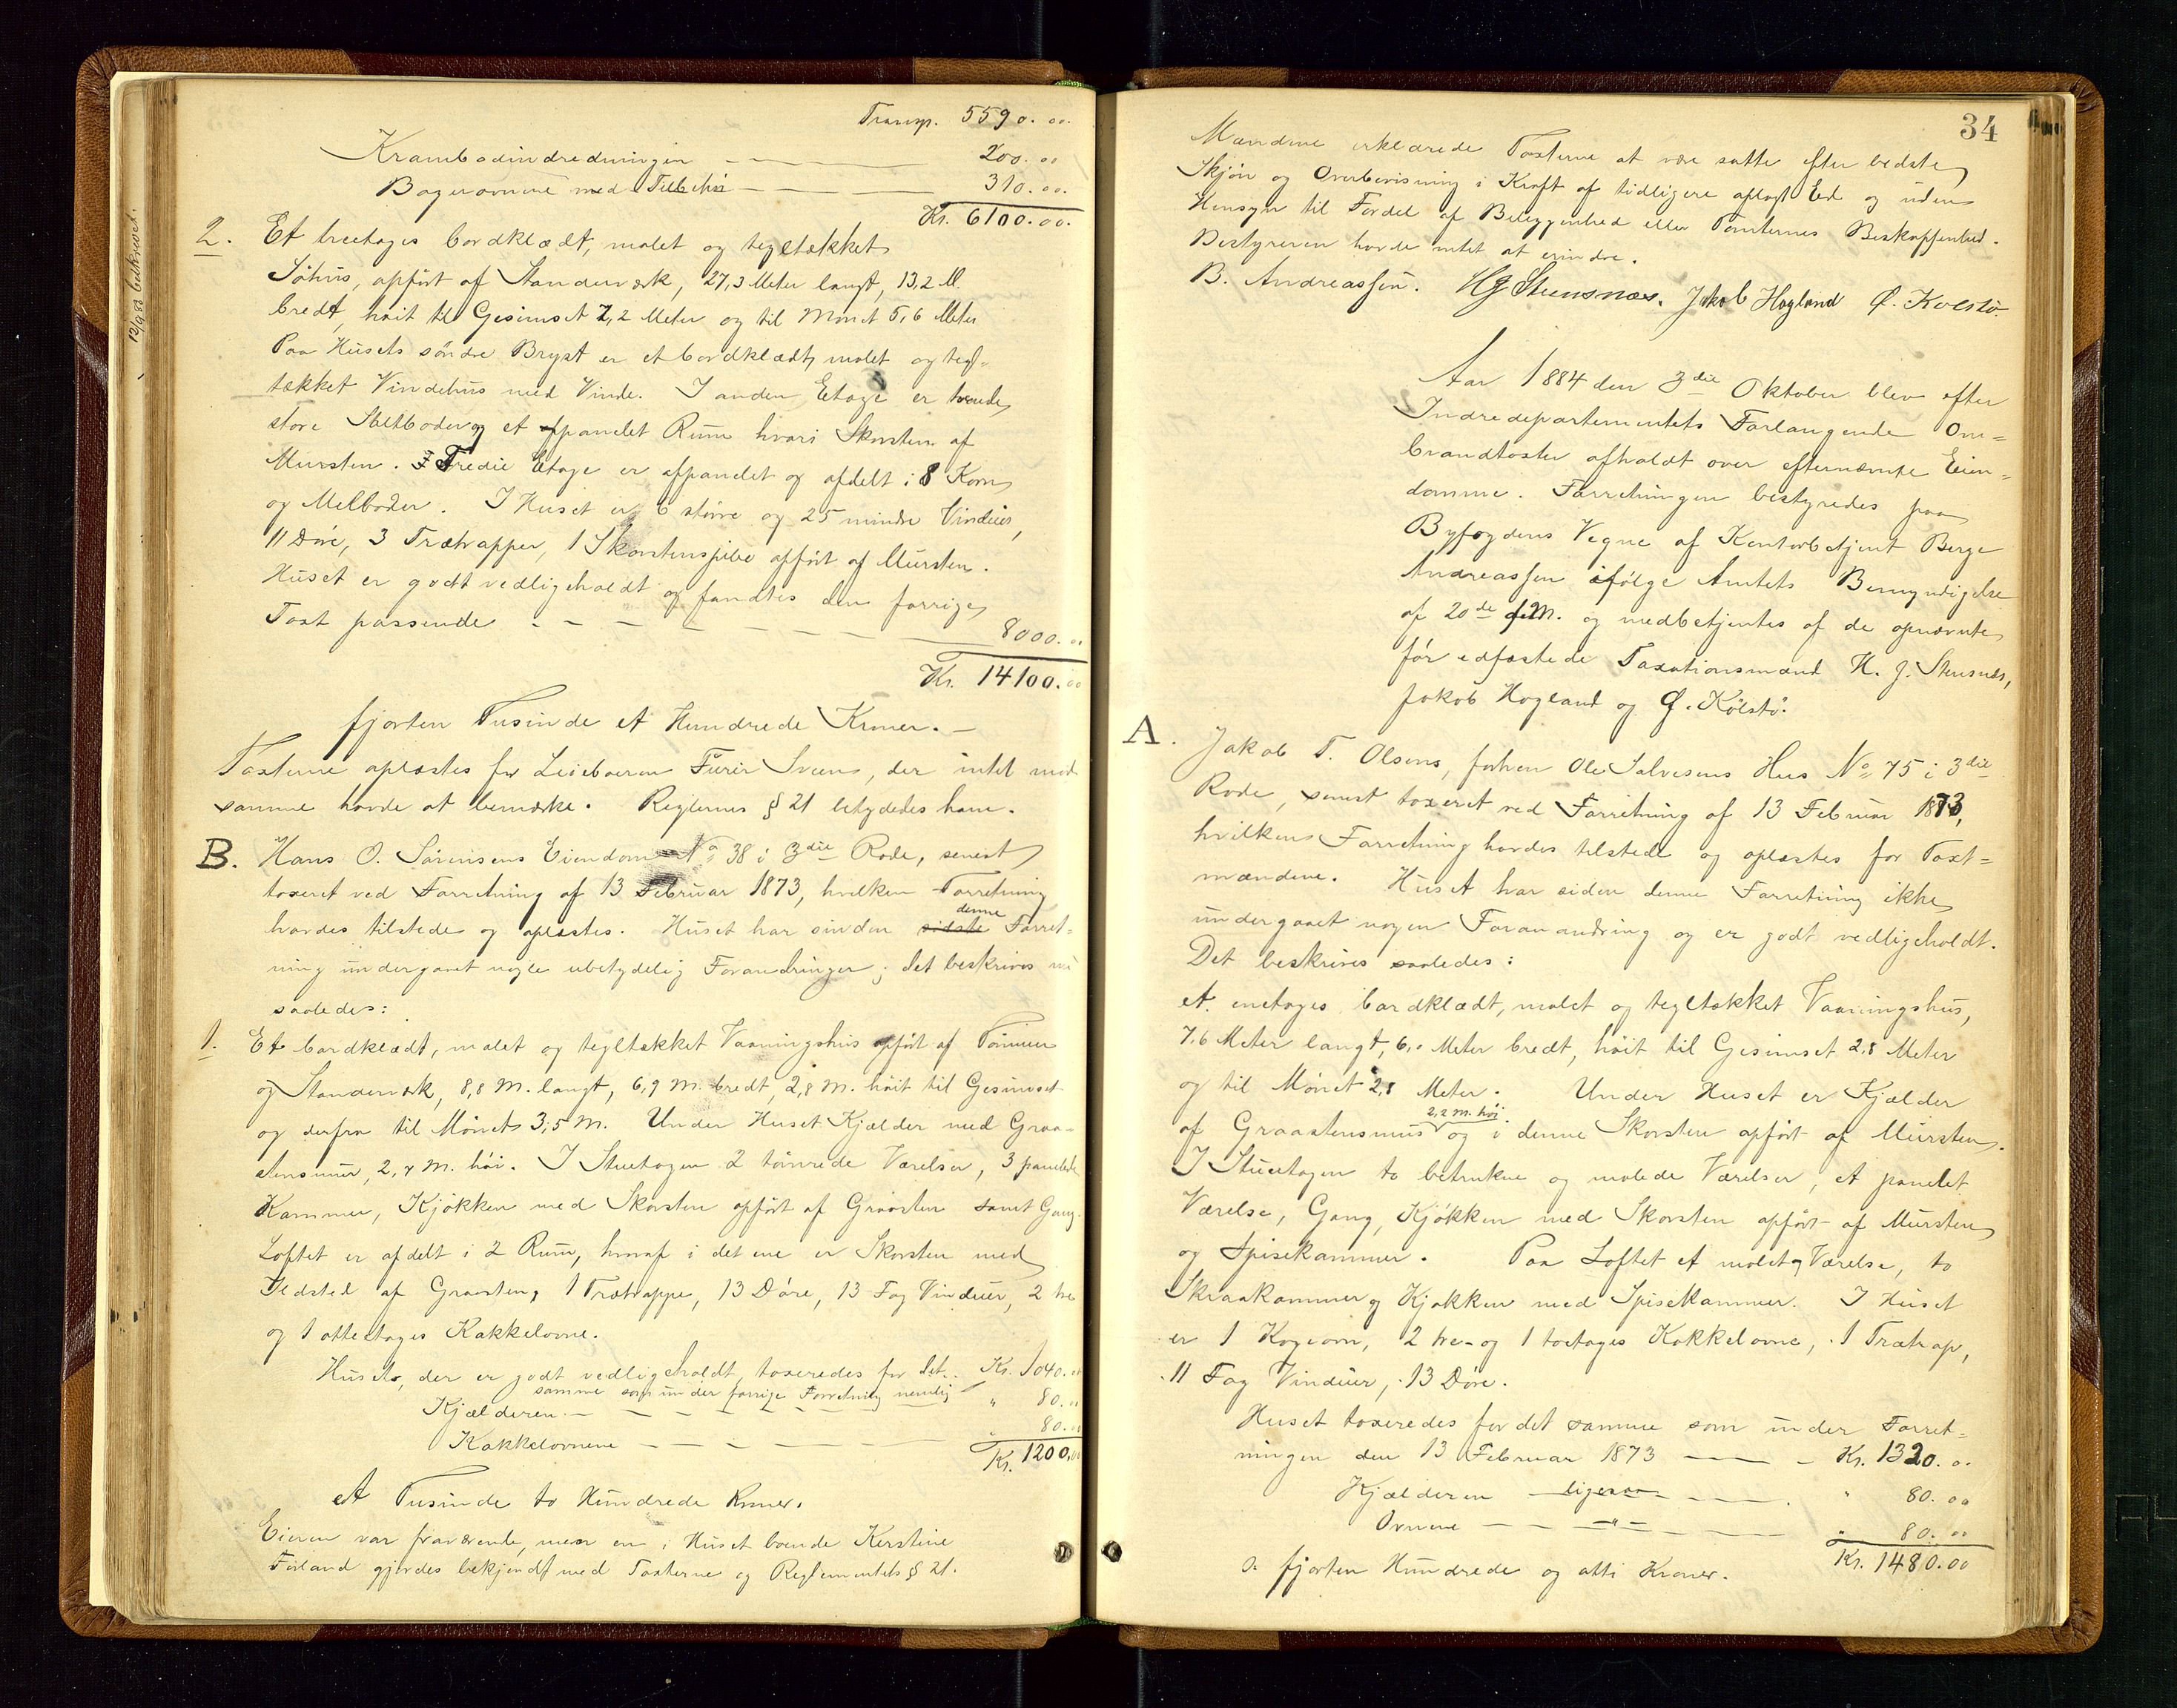 Transp. 5590.00.
Krambodindredningen — — — 200.00
Bagerovnene med Tilbehør — — — 310.00.
Kr. 6100.00.
2. Et treetages bordklædt, malet og tegltækket
Søhus, opført af Standerværk, 27,3 Meter langt, 13,2 M.
bredt, høit til Gesimset 7,2 Meter og til Mønet 5,6 Meter
Paa Husets søndre Bryst er et bordklædt, malet og tegl-
tækket Vindehus med Vinde. I anden Etage er tvende
store Saltboder og et afpanelet Rum hvori Skorsten af
Mursten. Tredie Etage er afpanelet og afdelt i 8 Korn
og Melboder. I Huset er 6 større og 25 mindre Vinduer,
11 Døre, 3 Trætrapper, 1 Skorstenspibe opført af Mursten.
Huset er godt vedligeholdt og fandtes den forrige
Taxt passende - - - - - 8000.00
Kr. 14100.00
fjorten Tusinde et Hundrede Kroner. —
Taxterne oplæstes for Leieboeren Furér Sveen, der intet mod
samme havde at bemærke. Reglernes § 21 betydedes ham.
B. Hans O. Sørensens Eiendom No 38 i 3die Rode, senest
taxeret ved Forretning af 13 Februar 1873, hvilken Forretning
havdes tilstede og oplæstes. Huset har sinden sidste denne Forret-
ning undergaaet nogle ubetydelig Forandringer; det beskrives nu
saaledes:
1. Et bordklædt, malet og tegltækket Vaaningshus opført af Tømmer
og Standerværk, 8,8 M. langt, 6,9 M. bredt, 2,8 M. høit til Gesimset
og derfra til Mønet 3,5 M. Under Huset Kjælder med Graa-
stensmur, 2,4 M. høi. I Stuetagen 2 tømrede Værelser, 3 panelede
Kammer, Kjøkken med Skorsten opført af Graasten samt Gang.
Loftet er afdelt i 2 Rum, hvoraf i det ene er Skorsten med
Ildsted af Graasten, 1 Trætrappe, 13 Døre, 13 Fag Vinduer, 2 tre
og 1 otteetages Kakkelovne.
Huset, der er godt vedligeholdt, taxeredes for det.. Kr. 1040.00
samme som under forrige Forretning nemlig
Kjælderen — — — — " 80.00
Kakkelovnene — — — — " 80.00
Kr. 1200.00
et Tusinde to Hundrede Kroner.
Eieren var fraværende, men en i Huset boende Kerstine
Førland gjordes bekjendt med Taxterne og Reglementets § 21.
12/9 88 bekrevet.
34
Mændene erklærede Taxterne at være satte efter bedste
Skjøn og Overbevisning i Kraft af tidligere aflagt Ed og uden
Hensyn til Fordel af Beliggenhed eller Tomternes Beskaffenhed.
Bestyreren havde intet at erindre.
B. Andreassen. HJ Stensnæs. Jakob Hagland Ø. Kolstø.
Aar 1884 den 3die Oktober blev efter
Indredepartementets Forlangende Om-
brandtaxter afholdt over efternævnte Eien-
domme. Forretningen bestyredes paa
Byfogdens Vegne af Kontorbetjent Berge
Andreassen ifølge Amtets Bemyndigelse
af 20de f.M. og medbetjentes af de opnævnte
før edfæstede Taxationsmænd H. J. Stensnæs,
Jakob Hagland og Ø. Kolstø.
A. Jakob T. Olsens, forhen Ole Salvesens Hus No 75 i 3die
Rode, senest taxeret ved Forretning af 13 Februar 1873,
hvilken Forretning havdes tilstede og oplæstes for Taxt-
mændene. Huset har siden denne Forretning ikke
undergaaet nogen Forannandring og er godt vedligeholdt.
Det beskrives saaledes:
et enetages bordklædt, malet og tegltækket Vaaningshus,
7,6 Meter langt, 6,0 Meter bredt, høit til Gesimset 2,8 Meter
og til Mønet 2,8 Meter. Under Huset er Kjælder
af Graastensmur 2,2 M. høi og i denne Skorsten opført af Mursten.
I Stuetagen to betrukne og malede Værelser, et panelet
Værelse, Gang, Kjøkken med Skorsten opført af Mursten
og Spisekammer. Paa Loftet et malet Værelse, to
Skraakammer og Kjøkken med Spisekammer. I Huset
er 1 Kogeovn, 2 tre- og 1 toetages Kakkelovne, 1 Trætrap,
11 Fag Vinduer, 13 Døre.
Huset taxeredes for det samme som under Forret-
ningen den 13 Februar 1873 — — Kr. 1320.00
Kjælderen — ligesaa — — " 80.00
Ovnene — — " — — " 80.00
Kr. 1480.00
er fjorten Hundrede og otti Kroner.